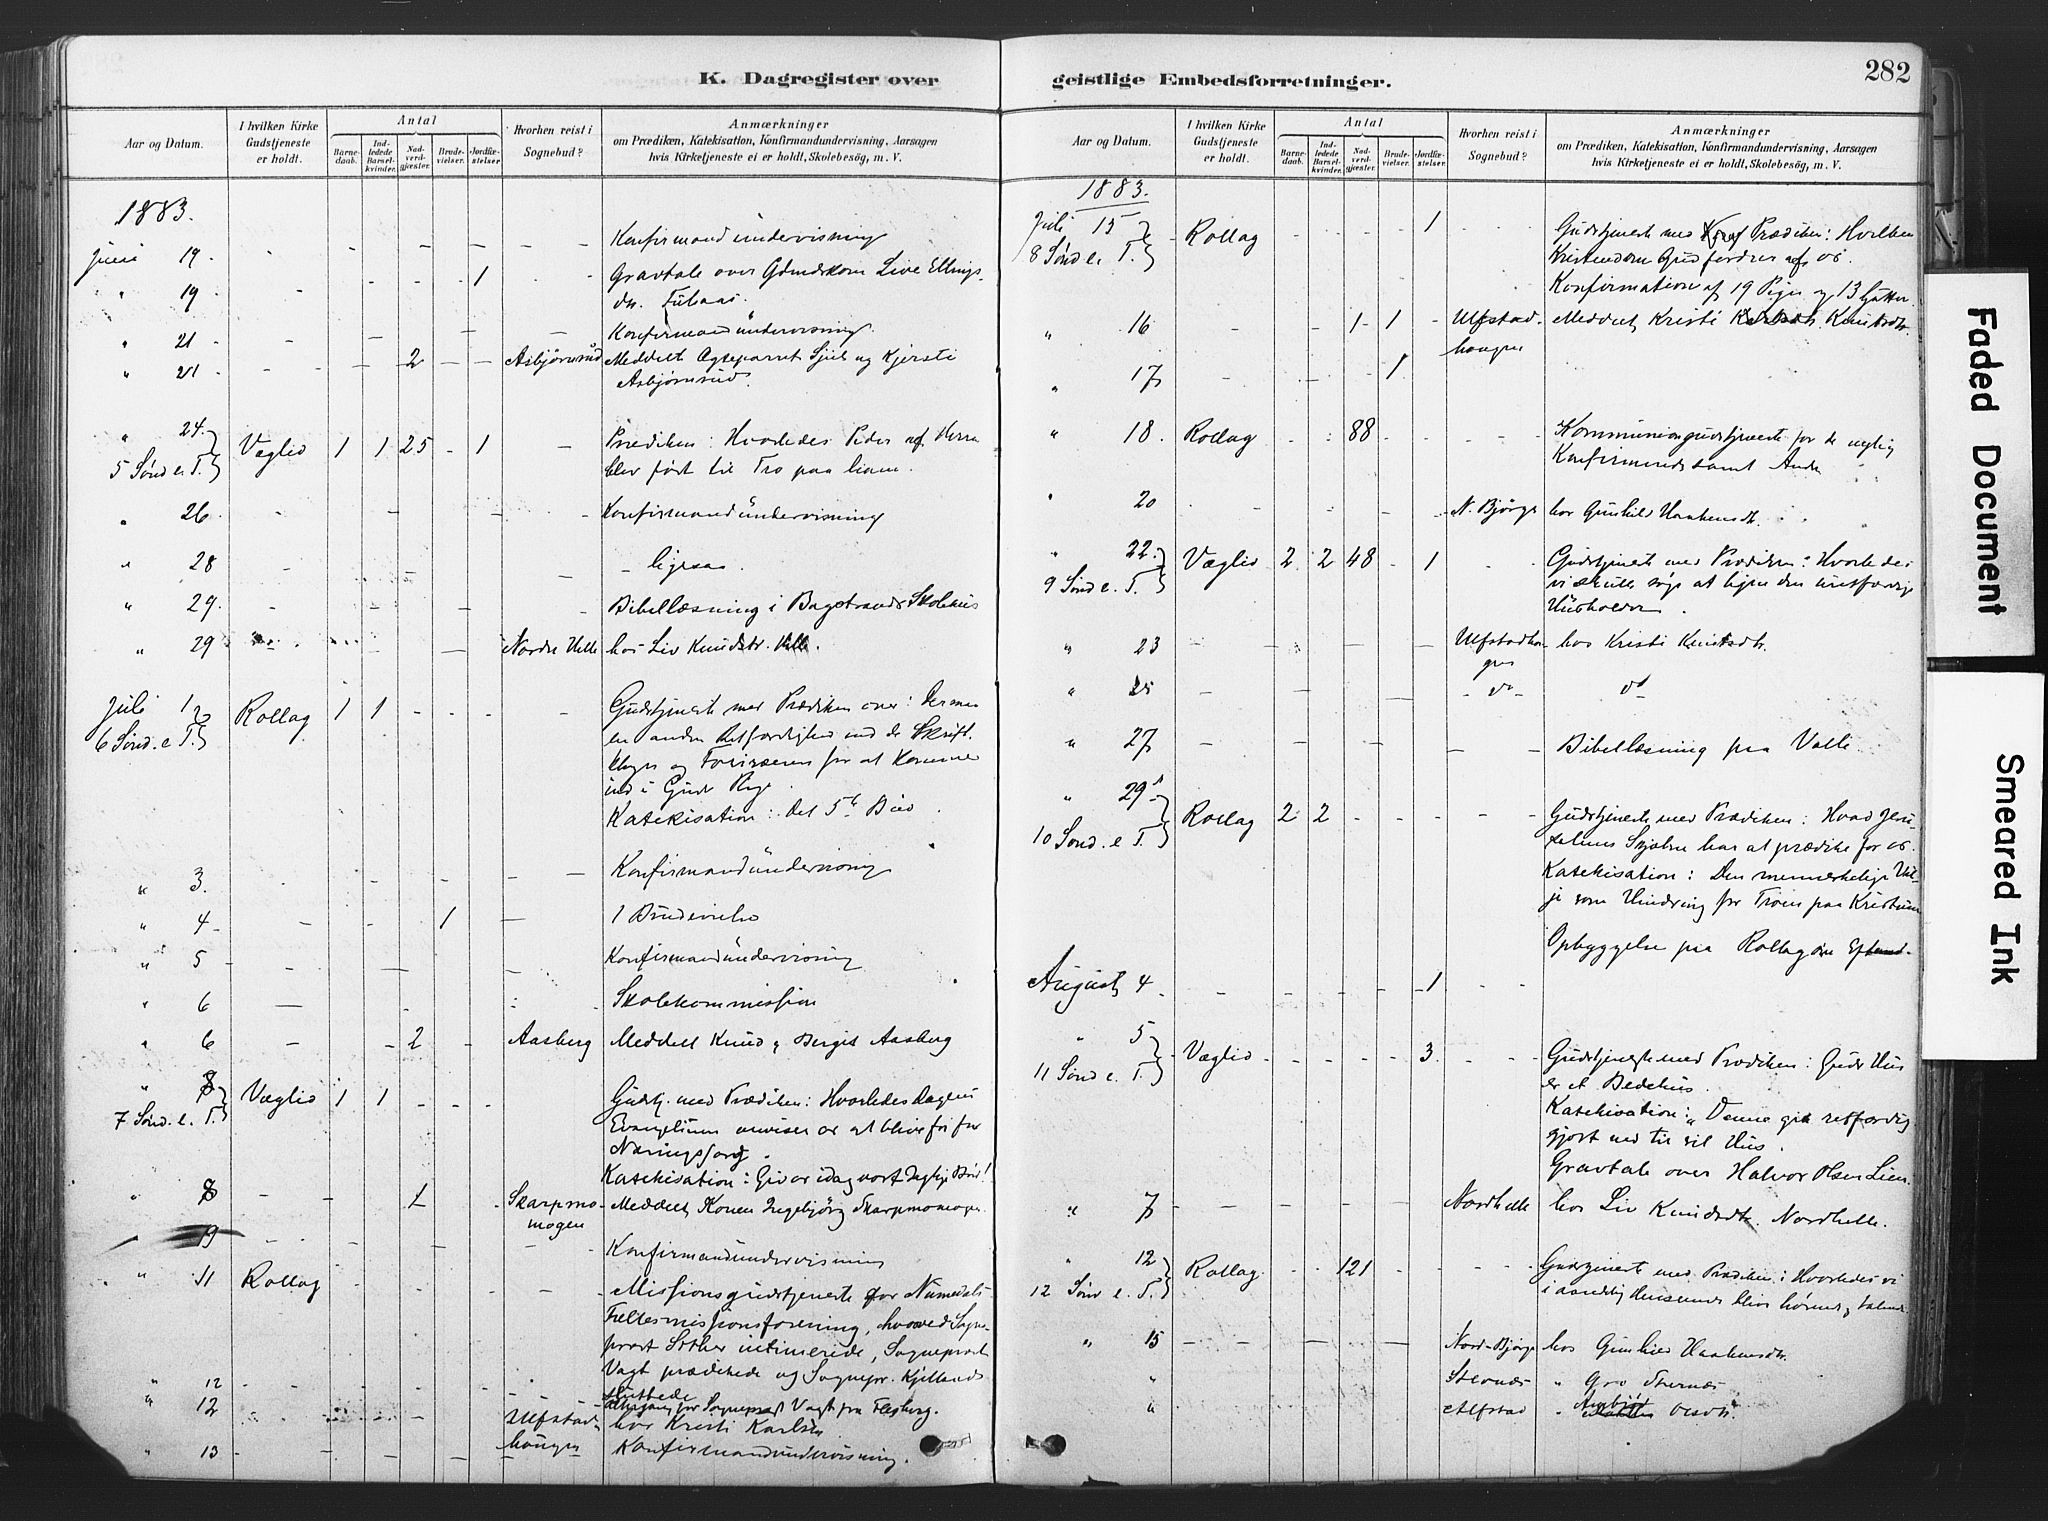 K. Dagregister over
Aar og Datum.
I hvilken Kirke Gudstjeneste er holdt.
Antal
Barnedaab.
Indledede Barselkvinder.
Nadverdgjæster.
Brudevielser.
Jordfæstelser
Hvorhen reist i Sognebud?
Anmærkninger
om Prædiken, Katekisation, Konfirmandundervisning, Aarsagen
hvis Kirketjeneste ei er holdt, Skolebesøg, m. V.
1883.
Juni 19 Konfirmandundervisning
" 19 1 Gravtale over Gaardskone Live Ellings-
dtr.
" 21 Konfirmandundervisning.
" 21 2 Asbjørnrud Meddelt Ægteparret Sjul og Kjersti
Asbjørnrud.
" 24. Væglid 1 1 25 1 Prædiken: Hvorledes Peder af Herren
5 Sønd e. T. blev ført til Tro paa ham.
" 26 Konfirmandundervisning
" 28 ligesaa.
" 29. Bibellæsning i Bagstrands Skolehus
" 29 Nordre Helle hos Liv Knudsdtr. Helle.
Juli 1 Rollag 1 1 Gudstjeneste med Prædiken over: Der
6 Sønd. e T. en anden Retfærdighed end de Skrift-
kloges og Farisæernes for at komme
ind i Guds Rige.
Katekisation: Det 5te Bud.
" 3. Konfirmandundervisning
" 4 1 1 Brudevielse
" 5 Konfirmandundervisning
" 6 Skolekommission
" 6 2 Aasberg Meddelt Knud og Bergit Aasberg
" 8 Væglid 1 1 Gudstj. med Prædiken: Hvorledes Dagens
7 Sønd. e. T. Evangelium anviser os at blive fri for
Næringssorg.
Katekisation: Giv os idag vort daglige Brød!
" 8 1 Skarpmo-
mogen Meddelt Konen Ingebjørg Skarpmomogen
Konfirmandundervisning
" 11 Rollag Missionsgudstjeneste for Numedals
Fællesmissionsforening, hvorved Sogne-
prest intimerede, Sogneprest
Vagt prædikede og Sognepr. Kjelland
" 12 sluttede
Sogneprest Vagt fra Flesberg.
" 12 Ulfstad-
haugen hos Kristi Karlsdtr
" 13 Konfirmandundervisning.
geistlige Embedsforretninger.
282
Aar og Datum.
I hvilken Kirke Gudstjeneste er holdt.
Antal
Barnedaab.
Indledede Barselkvinder.
Nadverdgjæster.
Brudevielser.
Jordfæstelser.
Hvorhen reist i Sognebud?
Anmærkninger
om Prædiken, Katekisation, Konfirmandundervisning, Aarsagen
hvis Kirketjeneste ei er holdt, Skolebesøg, m. V.
1883.
Juli 15 Rollag 1 Gudstjeneste med Prædiken: Hvilken
8 Sønd e. T. Kristendom Gud fordrer af os.
Konfirmation af 19 Piger og 13 Gutter.
" 16 1 1 Ulfstad-
haugen Meddelt Kristi Knudsdtr.
" 17 1
" 18. Rollag 88 Kommuniongudstjeneste for de nylig
Konfirmerede samt Andre
" 20 N. Bjørge hos Gunhild Haakensdtr.
" 22. Væglid 2 2 48 1 Gudstjeneste med Prædiken: Hvorledes
9 Sønd e. T. vi skulle søge at ligne den uretfærdige
Husholder.
" 23 Ulfstadhau-
gen hos Kristi Knudsdtr.
" 25 do do
" 27 Bibellæsning paa Valle.
" 29 Rollag 2 2 Gudstjeneste med Prædiken: Hvad Jeru-
10 Sønd. e T. salems Skjæbne har at prædike for os.
Katekisation: Den menneskelige Vil-
je som Hindring for Troen paa Kristum
Opbyggelse paa Rollagøen
August 4 1
" 5 Væglid 3 Gudstjeneste med Prædiken: Guds Hus
11 Sønd e. T. er et Bedehus.
Katekisation: "Denne gik retfærdig-
gjort ned til sit Hus.
Gravtale over Halvor Olsen Lien
" 7 Nordhelle hos Liv Knudsdtr. Nordhelle.
" 12 Rollag 121 Gudstjeneste med Prædiken: Hvorledes vi
12 Sønd e. T. i aandelig Henseende blive hørende og talende.
" 15 Nord-Bjørge hos Gunhild Haakensdtr.
" Stevnæs " Gro Stevnæs
" Alfstad " Olsdtr.
Faded Document
Smeared Ink